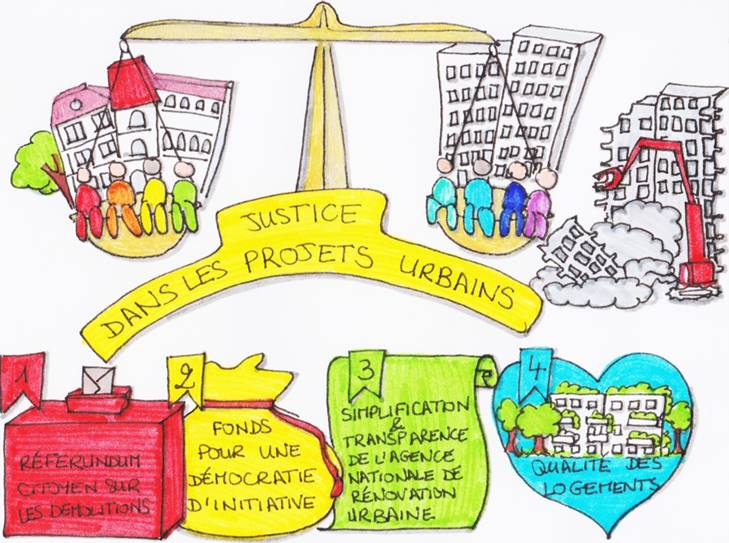 JUSTICE
DANS LES PROJETS URBAINS
1
RÉFERUNDUM
CITOYEN SUR
LES DEMOLITIONS
2
FONDS
POUR UNE
DÉMOCRATIE
D'INITIATIVE
3
SIMPLIFICATION
&
TRANSPARENCE
DE L'AGENCE
NATIONALE DE
RÉNOVATION
URBAINE
4
QUALITÉ DES
LOGEMENTS